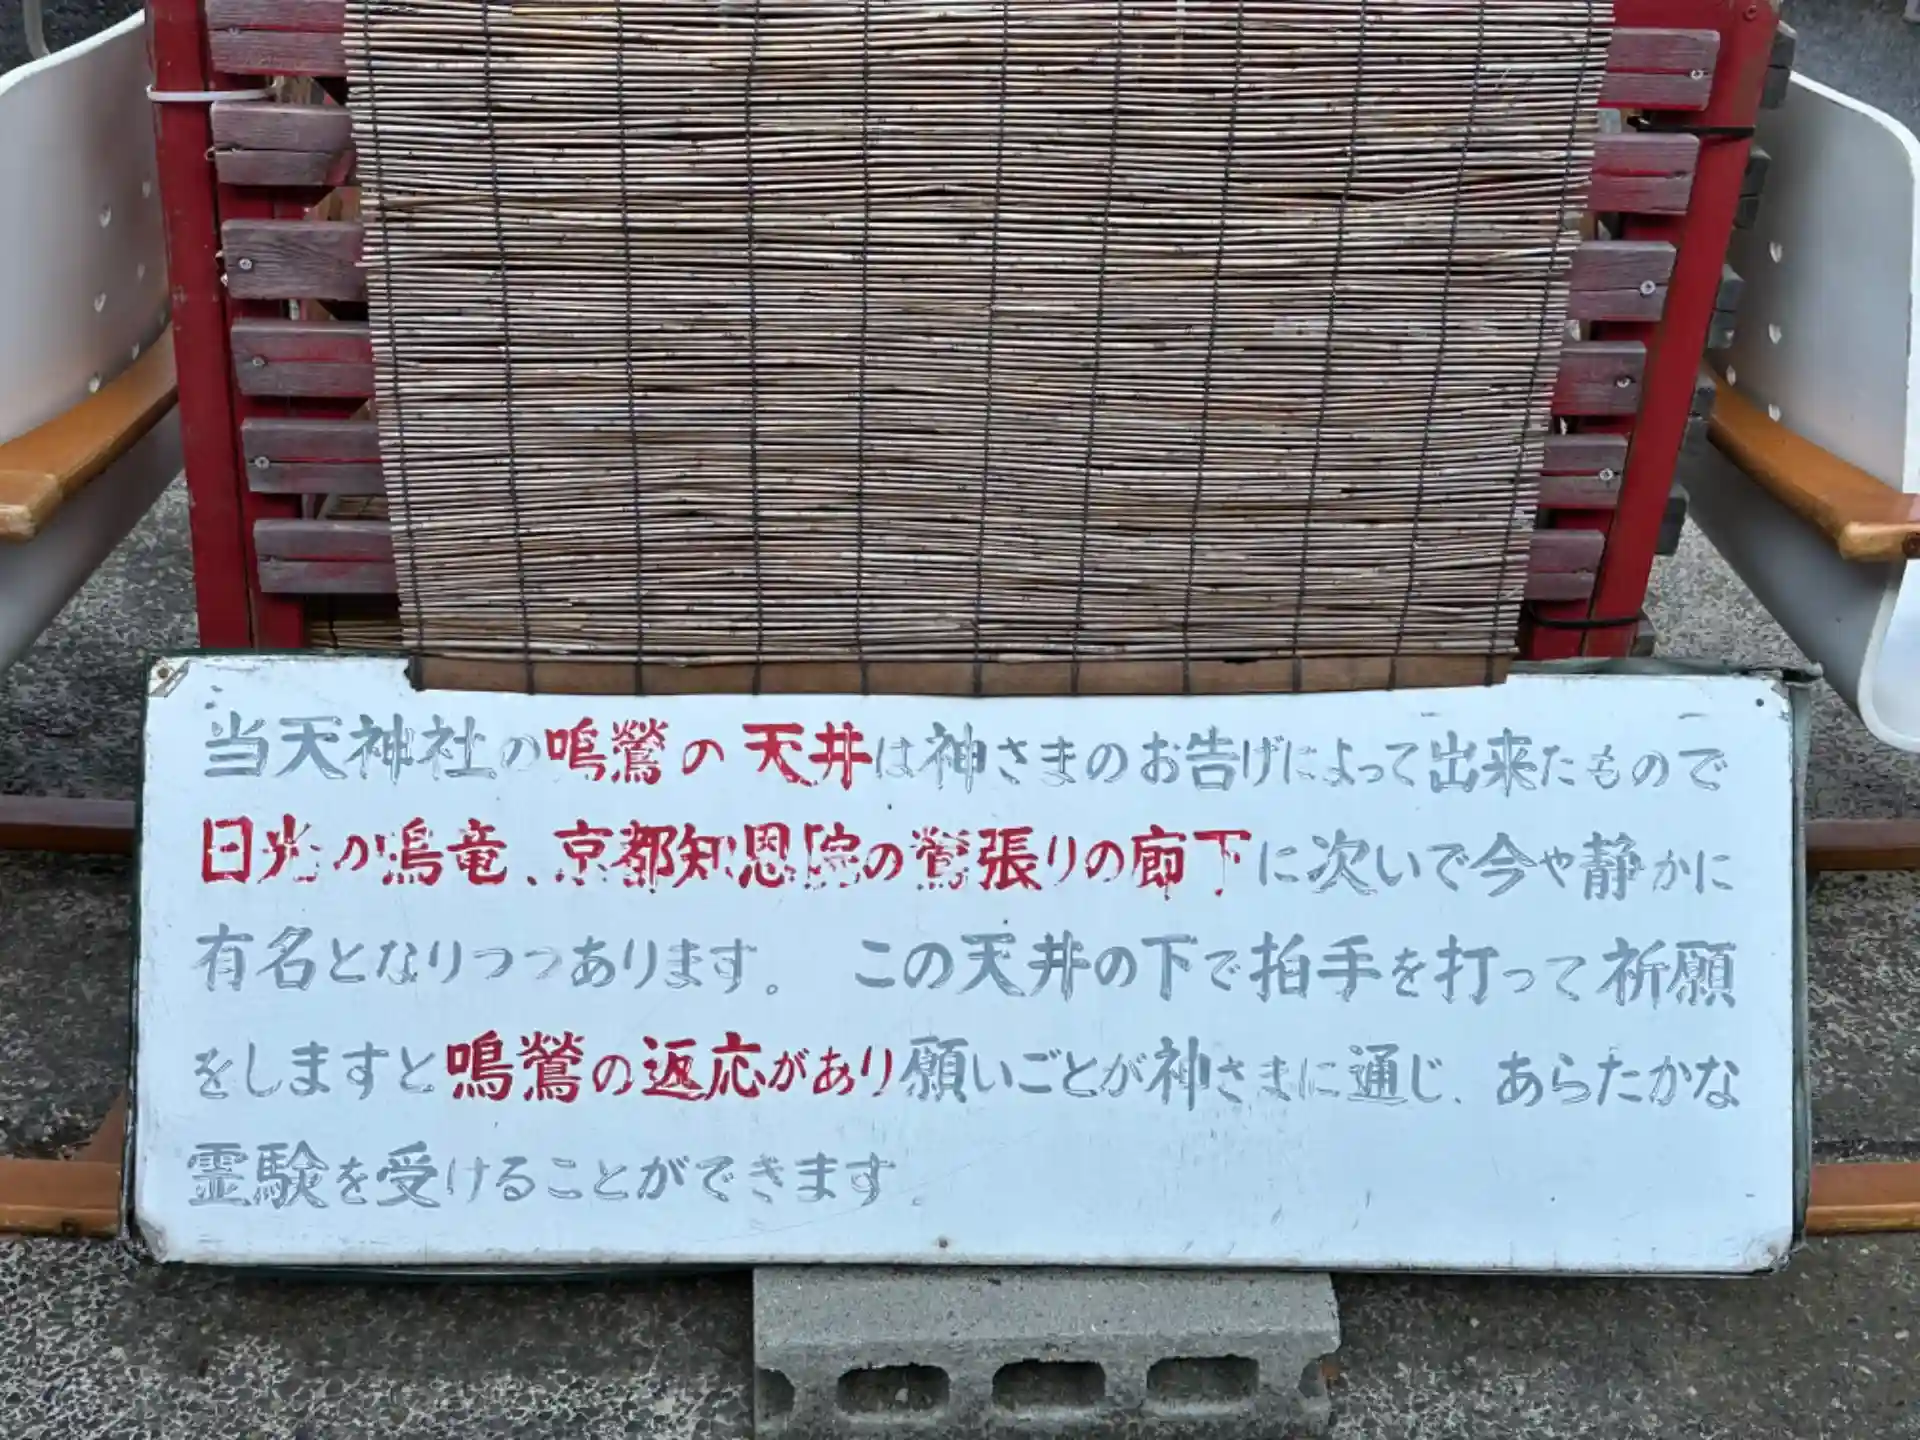 当天神社の鳴鶯の天井は神さまのお告げによって出来たもので
日光の鳴竜、京都知恩院の鶯張りの廊下に次いで今や静かに
有名となりつつあります。　この天井の下で拍手を打って祈願
をしますと鳴鶯の返応があり願いごとが神さまに通じ、あらたかな
霊験を受けることができます。